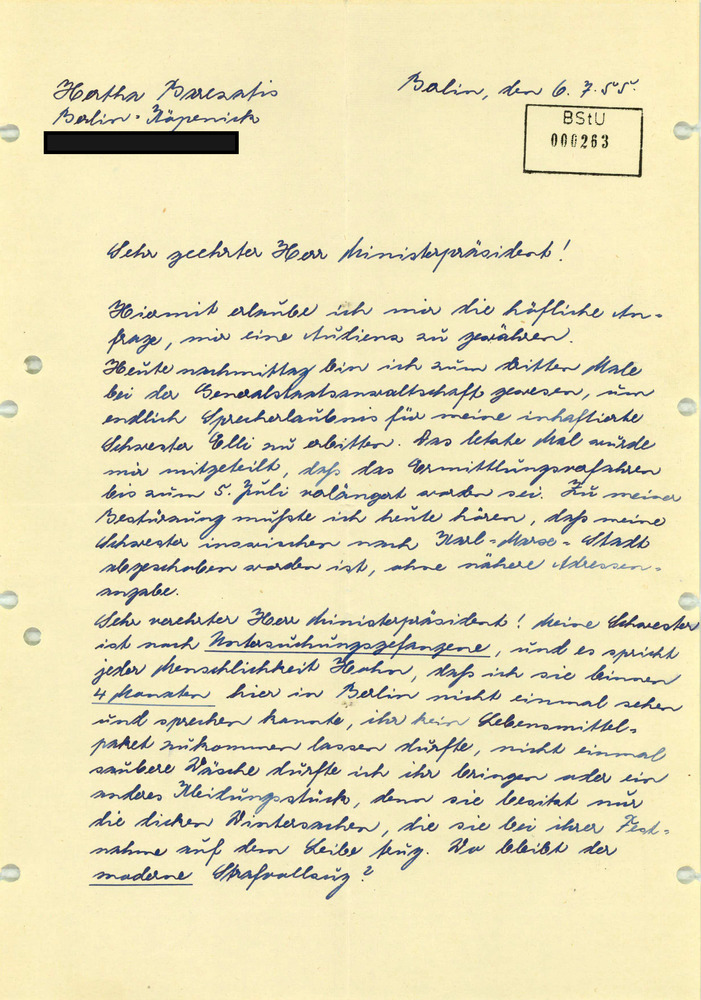 Hertha Barczatis
Berlin-Köpenick
Berlin, den 6.7.55.
BStU
000263
Sehr geehrter Herr Ministerpräsident!
Hiermit erlaube ich mir die höfliche An-
frage, mir eine Audienz zu gewähren.
Heute nachmittag bin ich zum dritten Male
bei der Generalstaatsanwaltschaft gewesen, um
endlich Sprecherlaubnis für meine inhaftierte
Schwester Elli zu erbitten. Das letzte Mal wurde
mir mitgeteilt, daß das Ermittlungsverfahren
bis zum 5. Juli verlängert worden sei. Zu meiner
Bestürzung mußte ich heute hören, daß meine
Schwester inzwischen nach Karl-Marx-Stadt
abgeschoben worden ist, ohne nähere Adressen-
angabe.
Sehr verehrter Herr Ministerpräsident! Meine Schwester
ist noch Untersuchungsgefangene, und es spricht
jeder Menschlichkeit Hohn, daß ich sie binnen
4 Monaten hier in Berlin nicht einmal sehen
und sprechen konnte, ihr kein Lebensmittel-
paket zukommen lassen durfte, nicht einmal
saubere Wäsche durfte ich ihr bringen oder ein
anderes Kleidungsstück, denn sie besitzt nur
die dicken Wintersachen, die sie bei ihrer Fest-
nahme auf dem Leibe trug. Wo bleibt der
moderne Strafvollzug?